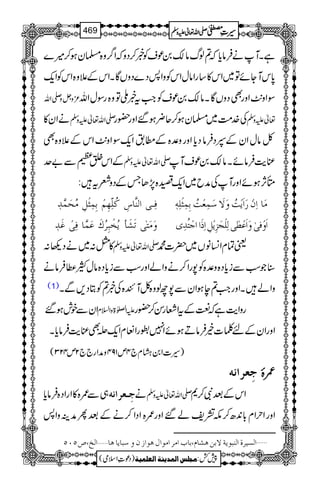 سیرتِ مصطفیٰ صلی اللہ تعالیٰ علیہ وسلم 469
ہے۔ آپ نے فرمایا کہ تم لوگ مالک بن عوف کو خبر کردو کہ اگر وہ مسلمان ہو کر میرے
پاس آجائے تو میں اس کا سارا مال اس کو واپس دے دوں گا۔ اس کے علاوہ اس کو ایک
سو اونٹ اور بھی دوں گا۔ مالک بن عوف کو جب یہ خبر ملی تو وہ رسول اللہ عزوجل و صلی اللہ
تعالیٰ علیہ وسلم کی خدمت میں مسلمان ہو کر حاضر ہو گئے اور حضور صلی اللہ تعالیٰ علیہ وسلم نے ان کا
کل مال ان کے سپرد فرما دیا اور وعدہ کے مطابق ایک سو اونٹ اس کے علاوہ بھی
عنایت فرمائے۔ مالک بن عوف آپ صلی اللہ تعالیٰ علیہ وسلم کے اس خلق عظیم سے بے حد
متاثر ہوئے اور آپ کی مدح میں ایک قصیدہ پڑھا جس کے دو شعر یہ ہیں:
مَا اِنْ رَاَيْتُ وَلَا سَمِعْتُ بِمِثْلِهٖ فِي النَّاسِ كُلِّهِمْ بِمِثْلِ مُحَمَّدٖ
اَوْفٰى وَاَعْطٰى لِلْجَزِيْلِ اِذَا اجْتُدِى وَمَتٰى تَشَأْ يُخْبِرْكَ عَمَّا فِىْ غَدٖ
یعنی تمام انسانوں میں حضرت محمد صلی اللہ تعالیٰ علیہ وسلم کا مثل نہ میں نے دیکھا نہ
سنا جو سب سے زیادہ وعدہ کو پورا کرنے والے اور سب سے زیادہ مال کثیر عطا فرمانے
والے ہیں۔ اور جب تم چاہو ان سے پوچھ لو وہ کل آئندہ کی خبر تم کو بتا دیں گے۔(1)
روایت ہے کہ نعت کے یہ اشعار سن کر حضور علیہ الصلوٰۃ والسلام ان سے خوش ہو گئے
اور ان کے لئے کلمات خیر فرماتے ہوئے انہیں بطور انعام ایک حلہ بھی عنایت فرمایا۔
(سیرت ابن ہشام ج۴ ص۴۹۱ و مدارج ج۲ ص۳۲۴)
عمرۂ جعرانہ
اس کے بعد نبی کریم صلی اللہ تعالیٰ علیہ وسلم نے جعرانہ ہی سے عمرہ کا ارادہ فرمایا
اور احرام باندھ کر مکہ تشریف لے گئے اور عمرہ ادا کرنے کے بعد پھر مدینہ واپس
السیرة النبویة لابن ھشام،باب امر اموال ھوازن و سبایا ھا......الخ،ص۵۰۵
پیش کش: مجلس المدینة العلمیة (دعوتِ اسلامی)